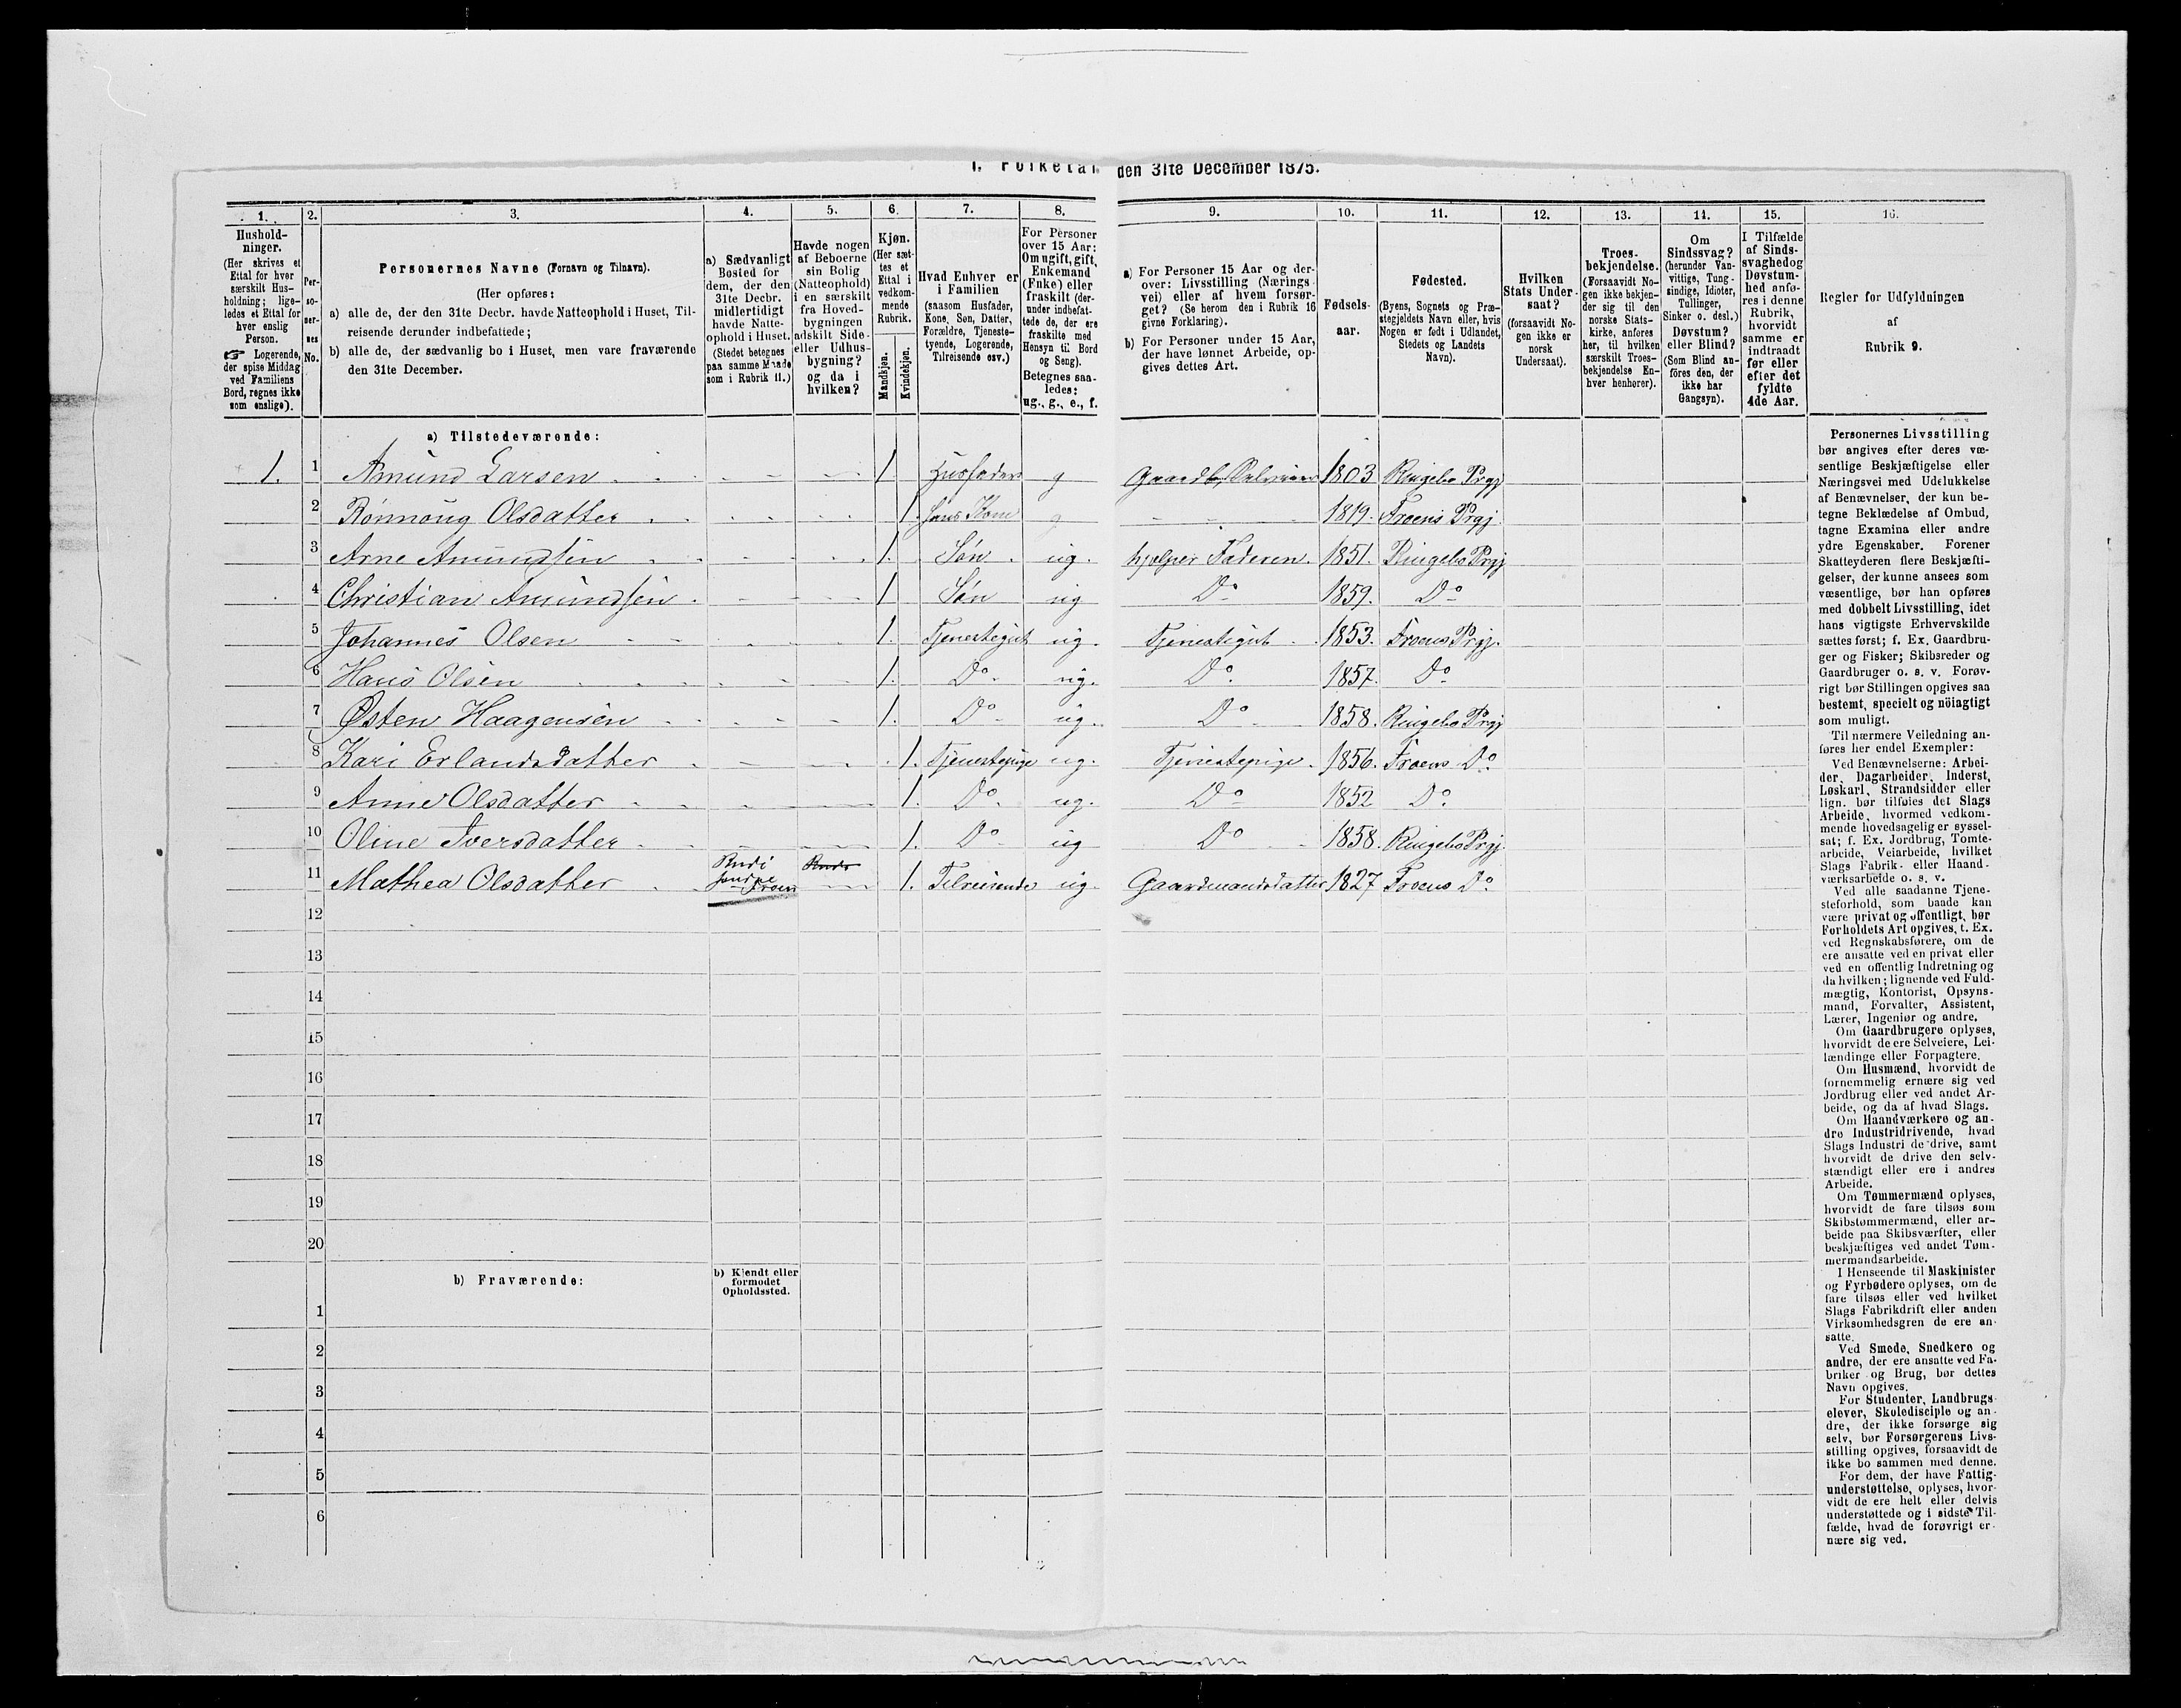 1. Folketal den 31te December 1875.
1.
2.
3.
4.
5.
6.
7.
8.
9.
10.
11.
12.
13.
14.
15.
16.
Hushold-
ninger.
(Her skrives et
Ettal for hver
særskilt Hus-
holdning; lige-
ledes et Ettal for
hver enslig
Person.
☞ Logerende,
der spise Middag
ved Familiens
Bord, regnes ikke
som enslige).
Per-
so-
ner-
nes
No.
Personernes Navne (Fornavn og Tilnavn).
(Her opføres:
a) alle de, der den 31te Decbr. havde Natteophold i Huset, Til-
reisende derunder indbefattede;
b) alle de, der sædvanlig bo i Huset, men vare fraværende
den 31te December.
a) Sædvanligt
Bosted for
dem, der den
31te Decbr.
midlertidigt
havde Natte-
ophold i Huset.
(Stedet betegnes
paa samme Maade
som i Rubrik 11.)
Havde nogen
af Beboerne
sin Bolig
(Natteophold)
i en særskilt
fra Hoved-
bygningen
adskilt Side-
eller Udhus-
bygning?
og da i
hvilken?
Kjøn.
(Her sæt-
tes et
Ettal i
vedkom-
mende
Rubrik.
Mandkjøn.
Kvindekjøn.
Hvad Enhver er
i Familien
(saasom Husfader,
Kone, Søn, Datter,
Forældre, Tjeneste-
tyende, Logerende,
Tilreisende osv.)
For Personer
over 15 Aar:
Om ugift, gift,
Enkemand
(Enke) eller
fraskilt (der-
under indbefat-
tede de, der ere
fraskilte med
Hensyn til Bord
og Seng).
Betegnes saa-
ledes:
ug., g., e., f.
a) For Personer 15 Aar og der-
over: Livsstilling (Nærings-
vei) eller af hvem forsør-
get? (Se herom den i Rubrik 16
givne Forklaring).
b) For Personer under 15 Aar,
der have lønnet Arbeide, op-
gives dettes Art.
Fødsels-
aar.
Fødested.
(Byens, Sognets og Præ-
stegjeldets Navn eller, hvis
Nogen er født i Udlandet,
Stedets og Landets
Navn).
Hvilken
Stats Under-
saat?
(forsaavidt No-
gen ikke er
norsk
Undersaat).
Troes-
bekjendelse.
(Forsaavidt No-
gen ikke bekjen-
der sig til den
norske Stats-
kirke, anføres
her, til hvilken
særskilt Troes-
bekjendelse En-
hver henhører).
Om
Sindssvag?
(herunder Van-
vittige, Tung-
sindige, Idioter,
Tullinger,
Sinker o. desl.)
Døvstum?
eller Blind?
(Som Blind an-
föres den, der
ikke har
Gangsyn).
I Tilfælde
af Sinds-
svaghed og
Døvstum-
hed anfø-
res i denne
Rubrik,
hvorvidt
samme er
indtraadt
før eller
efter det
fyldte
4de Aar.
Regler for Udfyldningen
af
Rubrik 9.
a) Tilstedeværende:
1. 1 Amund Larsen 1 Husfader g Gaardb. Selveier 1803 Ringebo Prgj
2 Rønnoug Olsdatter 1. hans Kone g 1819. Froens Prgj.
3 Arne Amundsen 1. Søn ug. hjelper Faderen. 1851. Ringebo Prgj
4 Christian Amundsen 1 Søn ug Do 1859. Do
5 Johannes Olsen 1. Tjenestegut ug. Tjenestegut 1853. Froens Prgj.
6 Hans Olsen 1. Do ug. Do 1857. Do
7 Østen Haagensen 1. Do ug. Do 1858. Ringebo Prgj
8 Kari Erlandsdatter 1. Tjenestepige ug. Tjenestepige 1856. Froens Do
9 Anne Olsdatter 1. Do ug. Do 1852 Do
10 Oline Iversdatter 1. Do ug Do 1858. Ringebo Prgj.
11 Mathea Olsdatter Froen 1. Tilreisende ug. Gaardmandsdatter 1827 Froens Do
12
13
14
15
16
17
18
19
20
b) Fraværende:
b) Kjendt eller
formodet
Opholdssted.
1
2
3
4
5
6
Personernes Livsstilling
bør angives efter deres væ-
sentlige Beskjæftigelse eller
Næringsvei med Udelukkelse
af Benævnelser, der kun be-
tegne Beklædelse af Ombud,
tagne Examina eller andre
ydre Egenskaber. Forener
Skatteyderen flere Beskjæfti-
gelser, der kunne ansees som
væsentlige, bør han opføres
med dobbelt Livsstilling, idet
hans vigtigste Erhvervskilde
sættes først; f. Ex. Gaardbru-
ger og Fisker; Skibsreder og
Gaardbruger o. s. v. Forøv-
rigt bør Stillingen opgives saa
bestemt, specielt og nöiagtigt
som muligt.
Til nærmere Veiledning an-
føres her endel Exempler:
Ved Benævnelserne: Arbei-
der, Dagarbeider, Inderst,
Løskarl, Strandsidder eller
lign. bør tilføies det Slags
Arbeide, hvormed vedkom-
mende hovedsagelig er syssel-
sat; f. Ex. Jordbrug, Tomte-
arbeide, Veiarbeide, hvilket
Slags Fabrik- eller Haand-
værksarbeide o. s. v.
Ved alle saadanne Tjene-
steforhold, som baade kan
være privat og offentligt, bør
Forholdets Art opgives, t. Ex.
ved Regnskabsførere, om de
ere ansatte ved en privat eller
ved en offentlig Indretning og
da hvilken; lignende ved Fuld-
mægtig, Kontorist, Opsyns-
mand, Forvalter, Assistent,
Lærer, Ingeniør og andre.
Om Gaardbrugere oplyses,
hvorvidt de ere Selveiere, Lei-
lændinge eller Forpagtere.
Om Husmænd, hvorvidt de
fornemmelig ernære sig ved
Jordbrug eller ved andet Ar-
beide, og da af hvad Slags.
Om Haandværkere og an-
dre Industridrivende, hvad
Slags Industri de drive, samt
hvorvidt de drive den selv-
stændigt eller ere i andres
Arbeide.
Om Tømmermænd oplyses,
hvorvidt de fare tilsøs som
Skibstømmermænd, eller ar-
beide paa Skibsværfter, eller
beskjæftiges ved andet Tøm-
mermandsarbeide.
I Henseende til Maskinister
og Fyrbødere oplyses, om de
fare tilsøs eller ved hvilket
Slags Fabrikdrift eller anden
Virksomhedsgren de ere an-
satte.
Ved Smede, Snedkere og
andre, der ere ansatte ved Fa-
briker og Brug, bør dettes
Navn opgives.
For Studenter, Landbrugs-
elever, Skoledisciple og an-
dre, der ikke forsørge sig
selv, bør Forsørgerens Livs-
stilling opgives, forsaavidt de
ikke bo sammen med denne.
For dem, der have Fattig-
understøttelse, oplyses, hvor-
vidt de ere helt eller delvis
understøttede og i sidste Til-
fælde, hvad de forøvrigt er-
nære sig ved.